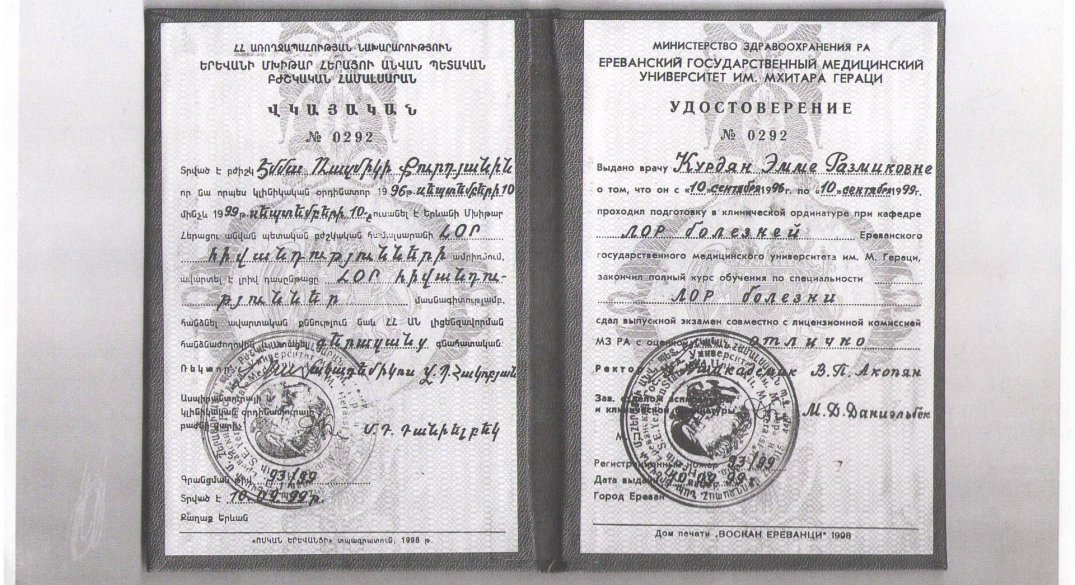 ՀՀ ԱՌՈՂՋԱՊԱՀՈՒԹՅԱՆ ՆԱԽԱՐԱՐՈՒԹՅՈՒՆ
ԵՐԵՎԱՆԻ ՄԽԻԹԱՐ ՀԵՐԱՑՈՒ ԱՆՎԱՆ ՊԵՏԱԿԱՆ
ԲԺՇԿԱԿԱՆ ՀԱՄԱԼՍԱՐԱՆ
ՎԿԱՅԱԿԱՆ
№ 0292
Տրված է բժիշկ Էմմա Ռազմիկի Քուրդյանին
որ նա որպես կլինիկական օրդինատոր 1996թ. սեպտեմբերի 10
մինչև 1999թ. սեպտեմբերի 10-ը ուսանել է Երևանի Մխիթար
Հերացու անվան պետական բժշկական համալսարանի ՀՕՐ
հիվանդությունների ամբիոնում,
ավարտել է լրիվ դասընթացը ՀՕՐ հիվանդու-
թյուններ մասնագիտությամբ,
հանձնել ավարտական քննություն նաև ՀՀ ԱՆ լիցենզավորման
հանձնաժողովին գերազանց գնահատական
Ռեկտոր ակադեմիկոս Վ.Պ. Հակոբյան
Ասպիրանտուրայի և
կլինիկական օրդինատուրայի
բաժնի վարիչ Մ.Դ. Դանիելբեկ
Գրանցման թիվ 93/99
Տրված է 10.09.99թ.
Քաղաք Երևան
«ՈՍԿԱՆ ԵՐԵՎԱՆՑԻ» տպագրատուն, 1998 թ.
МИНИСТЕРСТВО ЗДРАВООХРАНЕНИЯ РА
ЕРЕВАНСКИЙ ГОСУДАРСТВЕННЫЙ МЕДИЦИНСКИЙ
УНИВЕРСИТЕТ ИМ. МХИТАРА ГЕРАЦИ
УДОСТОВЕРЕНИЕ
№ 0292
Выдано врачу Курдян Эмме Размиковне
о том, что он с «10 сентября 1996г. по «10» сентября 1999г.
проходил подготовку в клинической ординатуре при кафедре
ЛОР болезней Ереванского
государственного медицинского университета им. М. Гераци,
закончил полный курс обучения по специальности
ЛОР болезни
сдал выпускной экзамен совместно с лицензионной комиссией
МЗ РА с оценкой отлично
Ректор академик В.П. Акопян
Зав. отделом аспирантуры
и клинической ординатуры М.Д. Даниэльбек
М.
Регистрационный номер 93/99
Дата выдачи 10.09.99г.
Город Ереван
Дом печати „ВОСКАН ЕРЕВАНЦИ" 1998